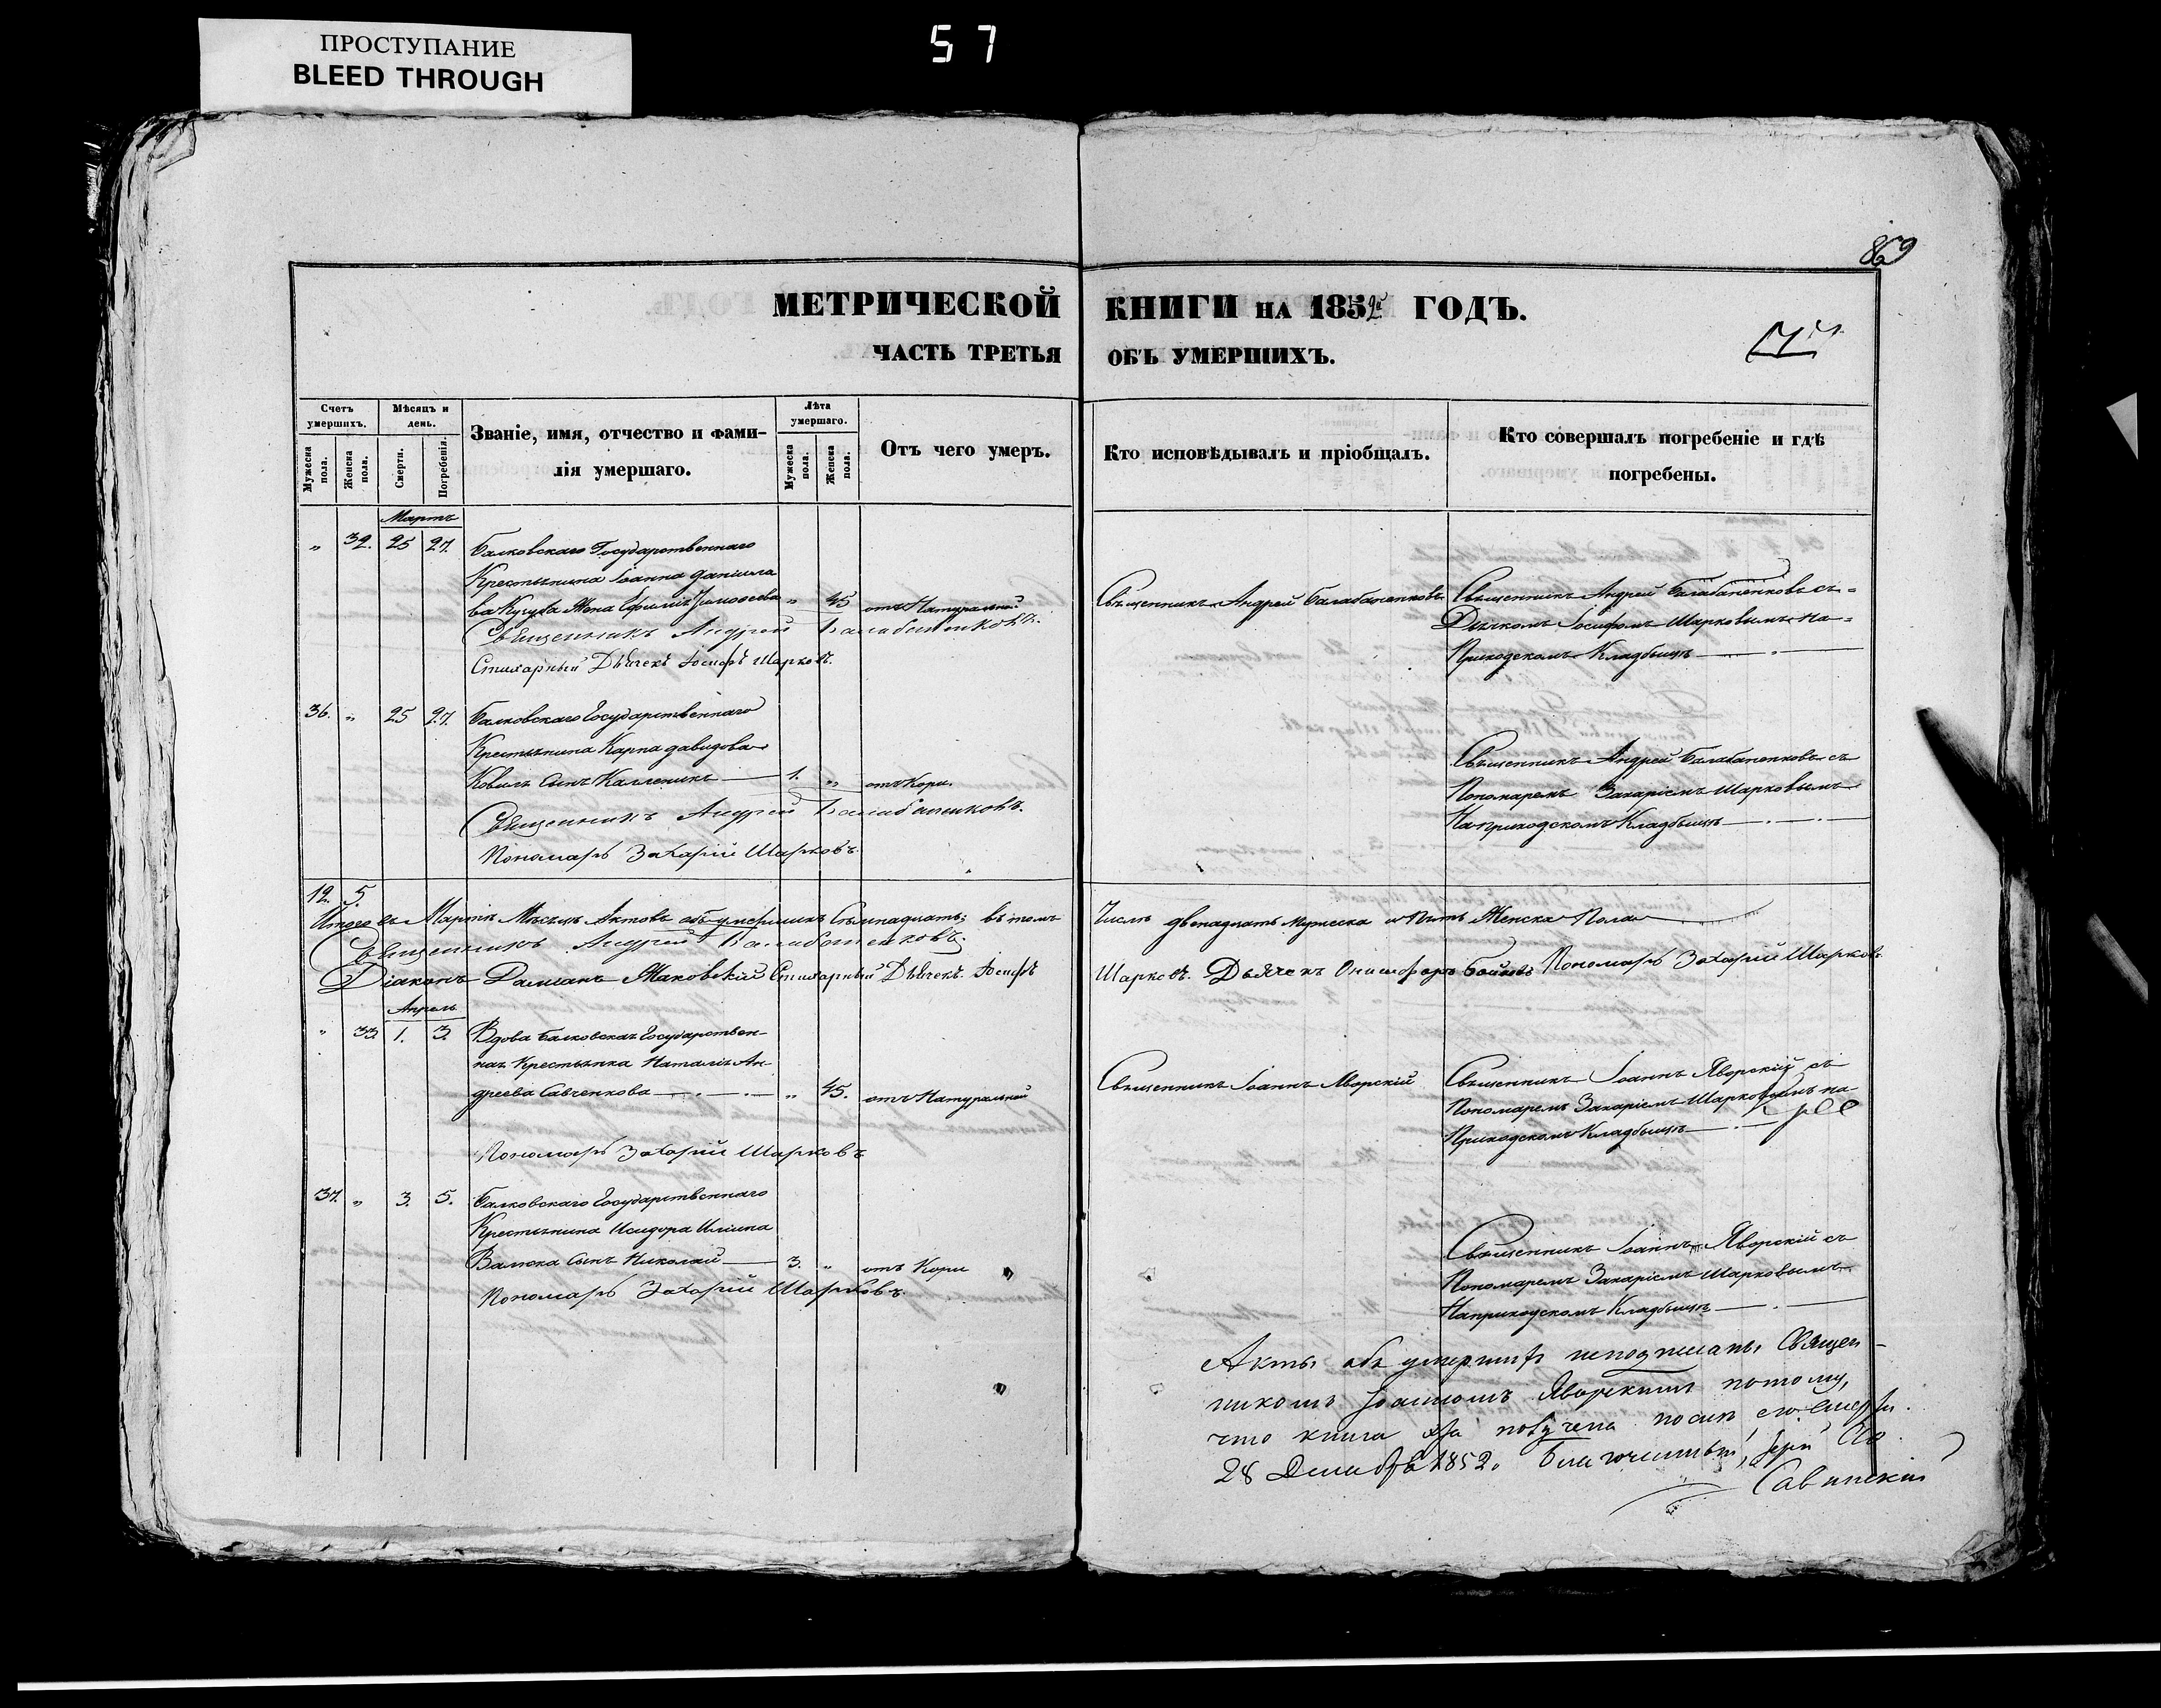 ПРОСТУПАНИЕ
BLEED THROUGH
57
869
МЕТРИЧЕСКОЙ КНИГИ НА 1852й ГОДЪ.
ЧАСТЬ ТРЕТЬЯ ОБЪ УМЕРШИХЪ.
Счетъ умершихъ.
Мужеска пола.
Женска пола.
Мѣсяцъ и день.
Смерти.
Погребенія.
Званіе, имя, отчество и фами-
лія умершаго.
Лѣта умершаго.
Мужеска пола.
Женска пола.
Отъ чего умеръ.
Кто исповѣдывалъ и пріобщалъ.
Кто совершалъ погребеніе и гдѣ
погребены.
Мартъ
" 32. 25 27. Балковскаго Государственнаго
Крестьянина Іоанна Даніила
ва Кугука Жена Ефимія Тимофеева " 45 отъ Натуральной
Священникъ Андрей Балабаненковъ.
Стихарный Дьячекъ Іосифъ Шарковъ.
Священникъ Андрей Балабаненковъ
Священникъ Андрей Балабаненковъ съ
Дьячкомъ Іосифомъ Шарковымъ на
Приходскомъ Кладбищѣ
36. " 25 27. Балковскаго Государственнаго
Крестьянина Карпа Давидова
Коваль Сынъ Каленикъ 1. " отъ Кори.
Священникъ Андрей Балабаненковъ.
Пономарь Захарій Шарковъ.
Священникъ Андрей Балабаненковъ съ
Пономаремъ Захаріемъ Шарковымъ
На приходскомъ Кладбищѣ
12. 5.
Итого въ Мартѣ Мѣсяцѣ Актовъ объ умершихъ Семнадцать; въ томъ Числѣ двенадцать Мужеска и Пять Женска Пола
Священникъ Андрей Балабаненковъ.
Діаконъ Даміанъ Маковскій Стихарный Дьячекъ Іосифъ Шарковъ. Дьячекъ Онисифоръ Бойновъ Пономарь Захарій Шарковъ
Апрель
" 33 1. 3. Вдова Балковская Государствен-
ная Крестьянка Наталія Ан-
дреева Савченкова " 45. отъ Натуральной
Пономарь Захарій Шарковъ
Священникъ Іоаннъ Яворскій
Священникъ Іоаннъ Яворскій съ
Пономаремъ Захаріемъ Шарковымъ на
Приходскомъ Кладбищѣ
37. " 3. 5. Балковскаго Государственнаго
Крестьянина Исидора Иліина
Сынъ Николай 3. " отъ Кори
Пономарь Захарій Шарковъ.
Священникъ Іоаннъ Яворскій съ
Пономаремъ Захаріемъ Шарковымъ
На приходскомъ Кладбищѣ
Акты объ умершихъ неподписаны Священ-
никомъ Іоанномъ Яворскимъ потому,
что книга получена послѣ его смерти.
28 Декабря 1852. Благочинный, Іерей
Савинскій